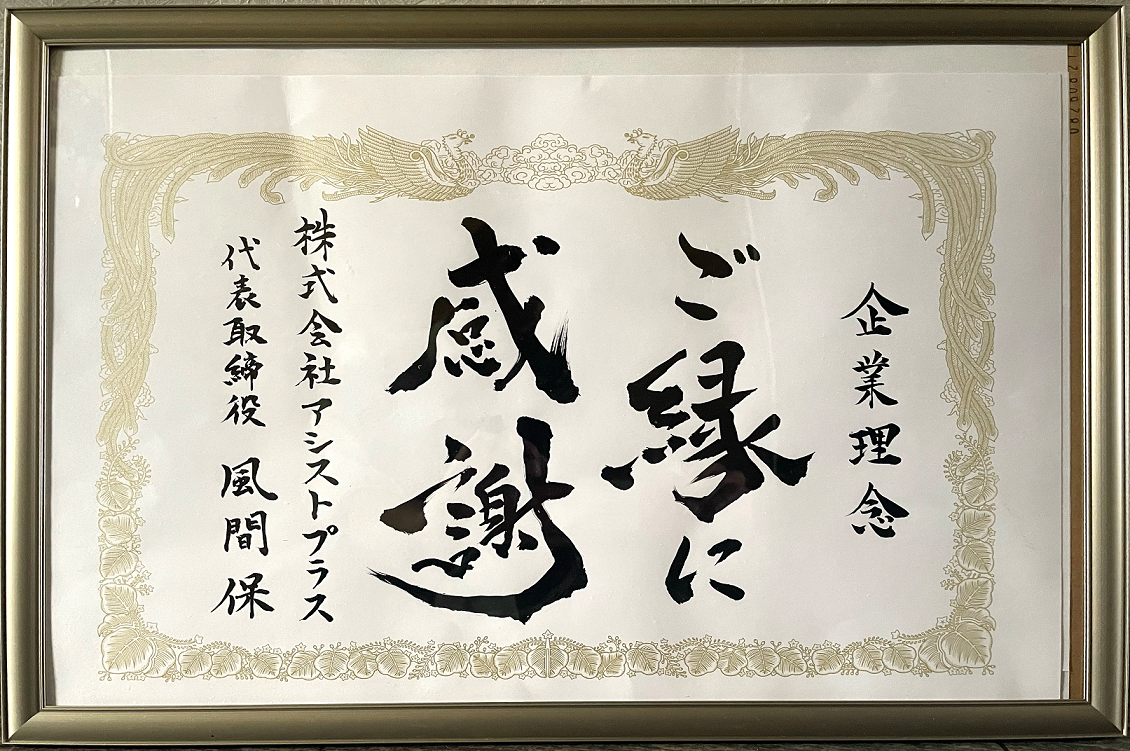 企業理念
ご縁に
感謝
株式会社アシストプラス
代表取締役 風間 保